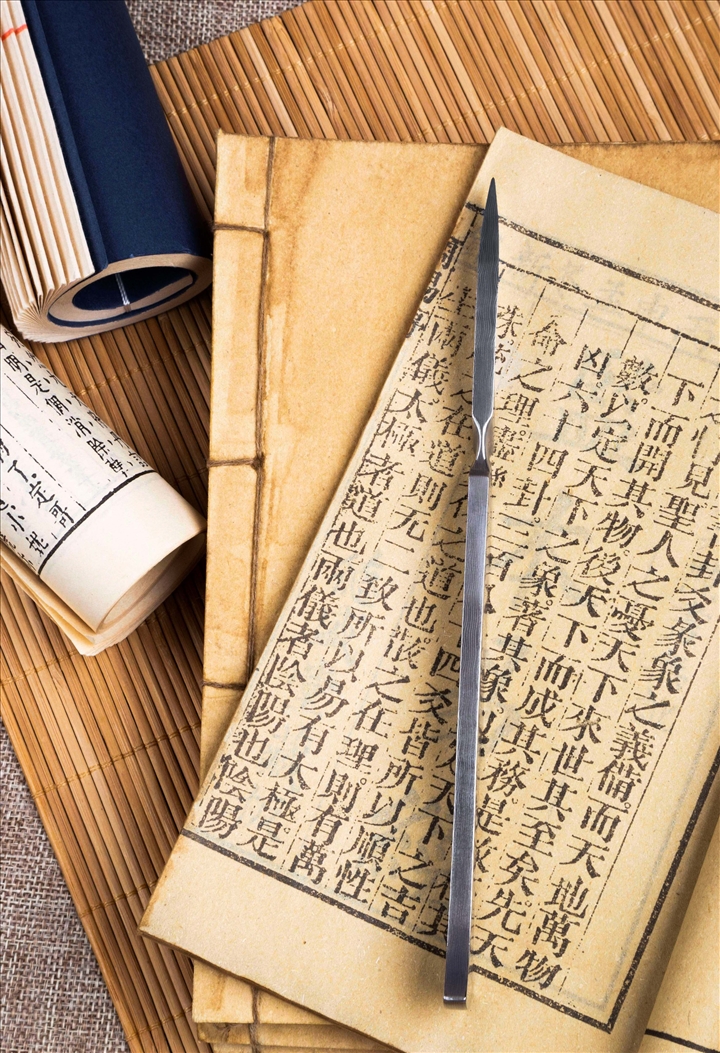 卦爻彖象之義備而天地萬物
之情見聖人之憂天下來世其至矣先天
下而開其物後天下而成其務是故其
數以定天下之象著其象以天下之吉
凶六十四卦三百四爻皆所以順性
命之理之道也散之在理則有萬
殊之在道則无二致所以易有太極是
兩儀太極者道也兩儀者陰陽也陰陽
是個消除
了定哥